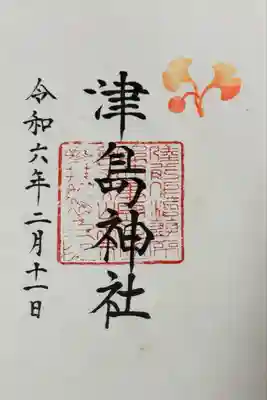 津島神社
令和六年二月十一日